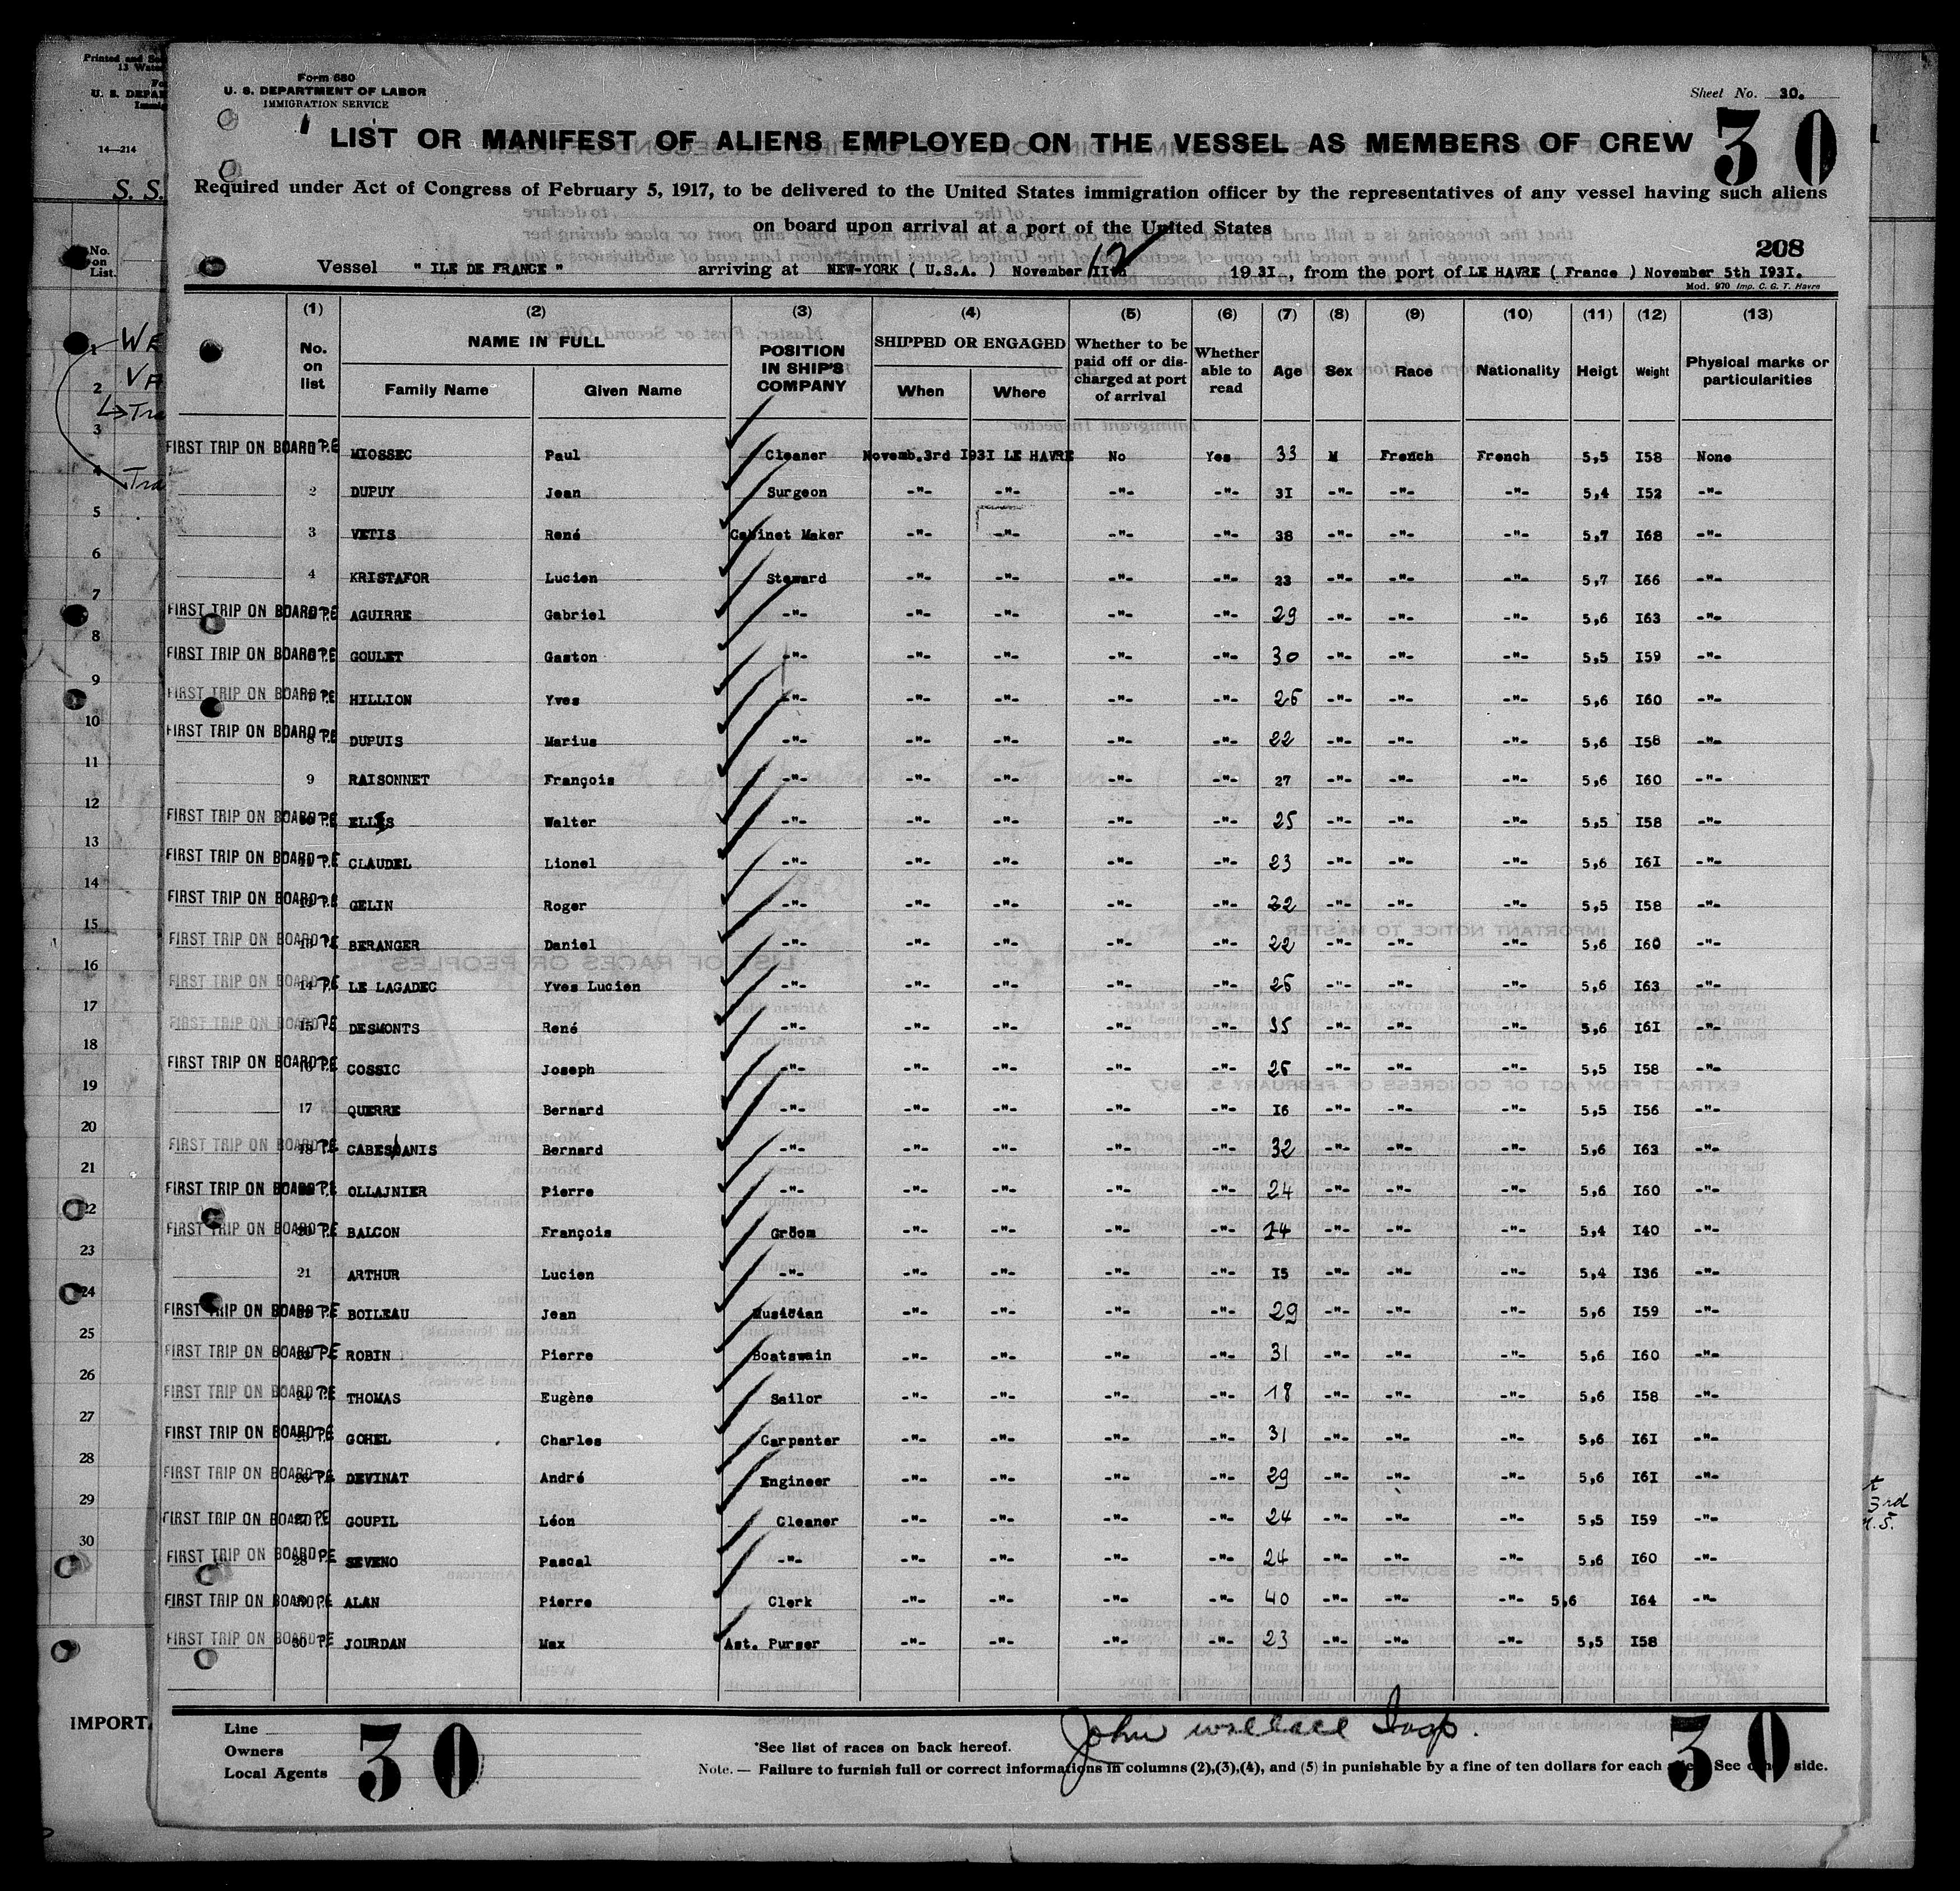 Printed and
13 Water
U. S. DEPAR
Immig
14—214
S. S.
No.
on
List.
Form 680
U. S. DEPARTMENT OF LABOR
IMMIGRATION SERVICE
Sheet No. 30.
LIST OR MANIFEST OF ALIENS EMPLOYED ON THE VESSEL AS MEMBERS OF CREW 30
Required under Act of Congress of February 5, 1917, to be delivered to the United States immigration officer by the representatives of any vessel having such aliens
on board upon arrival at a port of the United States
208
Vessel " ILE DE FRANCE " arriving at NEW-YORK ( U.S.A. ) November IIth 12 1931., from the port of LE HAVRE ( France ) November 5th I93I.
Mod. 970 Imp. C. G. T. Havre
(1) (2) (3) (4) (5) (6) (7) (8) (9) (10) (11) (12) (13)
No. on list NAME IN FULL Family Name Given Name POSITION IN SHIP'S COMPANY SHIPPED OR ENGAGED When Where Whether to be paid off or discharged at port of arrival Whether able to read Age Sex Race Nationality Heigt Weight Physical marks or particularities
FIRST TRIP ON BOARD P.E MIOSSEC Paul Cleaner Novemb.3rd I93I LE HAVRE No Yes 33 M French French 5,5 I58 None
2 DUPUY Jean Surgeon -"- -"- -"- -"- 3I -"- -"- -"- 5,4 I52 -"-
3 VETIS René Cabinet Maker -"- -"- -"- -"- 38 -"- -"- -"- 5,7 I68 -"-
4 KRISTAFOR Lucien Steward -"- -"- -"- -"- 23 -"- -"- -"- 5,7 I66 -"-
FIRST TRIP ON BOARD P.E AGUIRRE Gabriel -"- -"- -"- -"- -"- 29 -"- -"- -"- 5,6 I63 -"-
FIRST TRIP ON BOARD P.E GOULET Gaston -"- -"- -"- -"- -"- 30 -"- -"- -"- 5,5 I59 -"-
FIRST TRIP ON BOARD P.E HILLION Yves -"- -"- -"- -"- -"- 26 -"- -"- -"- 5,6 I60 -"-
FIRST TRIP ON BOARD P.E 8 DUPUIS Marius -"- -"- -"- -"- -"- 22 -"- -"- -"- 5,6 I58 -"-
9 RAISONNET François -"- -"- -"- -"- -"- 27 -"- -"- -"- 5,6 I60 -"-
FIRST TRIP ON BOARD P.E ELLIS Walter -"- -"- -"- -"- -"- 25 -"- -"- -"- 5,5 I58 -"-
FIRST TRIP ON BOARD P.E CLAUDEL Lionel -"- -"- -"- -"- -"- 23 -"- -"- -"- 5,6 I6I -"-
FIRST TRIP ON BOARD P.E GELIN Roger -"- -"- -"- -"- -"- 22 -"- -"- -"- 5,5 I58 -"-
FIRST TRIP ON BOARD P.E BERANGER Daniel -"- -"- -"- -"- -"- 22 -"- -"- -"- 5,6 I60 -"-
FIRST TRIP ON BOARD 14 P.E LE LAGADEC Yves Lucien -"- -"- -"- -"- -"- 26 -"- -"- -"- 5,6 I63 -"-
FIRST TRIP ON BOARD 15 P.E DESMONTS René -"- -"- -"- -"- -"- 35 -"- -"- -"- 5,6 I6I -"-
FIRST TRIP ON BOARD P.E COSSIC Joseph -"- -"- -"- -"- -"- 26 -"- -"- -"- 5,5 I58 -"-
17 QUERRE Bernard -"- -"- -"- -"- -"- I6 -"- -"- -"- 5,5 I56 -"-
FIRST TRIP ON BOARD 18 P.E CABESDANIS Bernard -"- -"- -"- -"- -"- 32 -"- -"- -"- 5,6 I63 -"-
FIRST TRIP ON BOARD P.E OLLAJNIER Pierre -"- -"- -"- -"- -"- 24 -"- -"- -"- 5,6 I60 -"-
FIRST TRIP ON BOARD 20 P.E BALCON François Groom -"- -"- -"- -"- 14 -"- -"- -"- 5,4 I40 -"-
21 ARTHUR Lucien -"- -"- -"- -"- -"- I5 -"- -"- -"- 5,4 I36 -"-
FIRST TRIP ON BOARD P.E BOILEAU Jean Musician -"- -"- -"- -"- 29 -"- -"- -"- 5,6 I59 -"-
FIRST TRIP ON BOARD P.E ROBIN Pierre Boatswain -"- -"- -"- -"- 31 -"- -"- -"- 5,6 I60 -"-
FIRST TRIP ON BOARD 24 P.E THOMAS Eugène Sailor -"- -"- -"- -"- 18 -"- -"- -"- 5,6 I58 -"-
FIRST TRIP ON BOARD 25 P.E GOHEL Charles Carpenter -"- -"- -"- -"- 31 -"- -"- -"- 5,6 I6I -"-
FIRST TRIP ON BOARD 26 P.E DEVINAT André Engineer -"- -"- -"- -"- 29 -"- -"- -"- 5,6 I6I -"-
FIRST TRIP ON BOARD 27 P.E GOUPIL Léon Cleaner -"- -"- -"- -"- 24 -"- -"- -"- 5,5 I59 -"-
FIRST TRIP ON BOARD 28 P.E SEVENO Pascal -"- -"- -"- -"- -"- 24 -"- -"- -"- 5,6 I60 -"-
FIRST TRIP ON BOARD P.E ALAN Pierre Clerk -"- -"- -"- -"- 40 -"- -"- -"- 5,6 I64 -"-
FIRST TRIP ON BOARD 30 P.E JOURDAN Max Ast. Purser -"- -"- -"- -"- 23 -"- -"- -"- 5,5 I58 -"-
IMPORT
Line
Owners
Local Agents
30
John Wallace Insp.
*See list of races on back hereof.
Note. — Failure to furnish full or correct informations in columns (2),(3),(4), and (5) in punishable by a fine of ten dollars for each alien See other side.
30